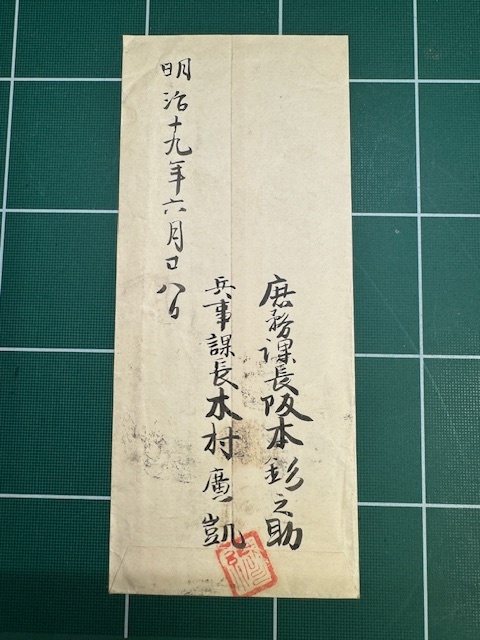 庶務課長阪本釤之助
兵事課長木村廣凱
明治十九年六月八日